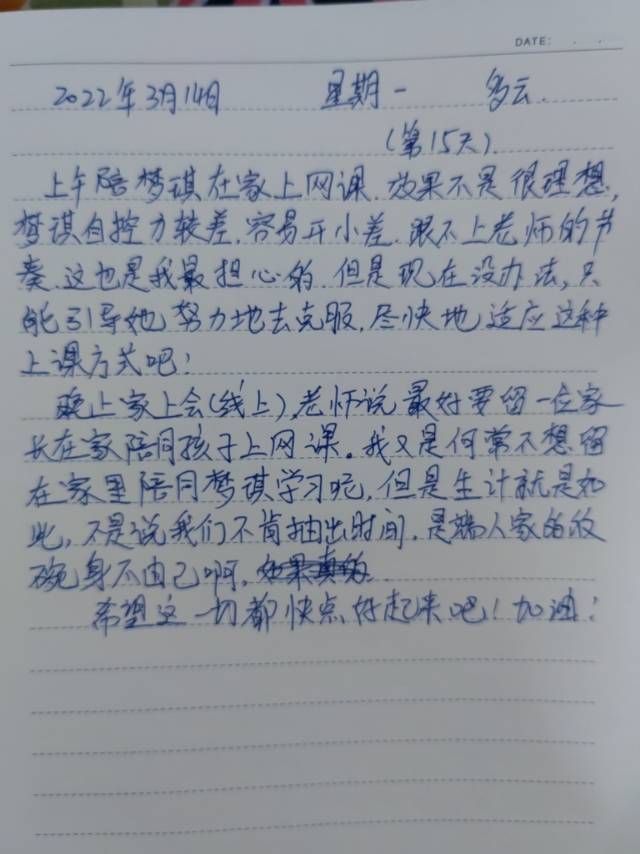 DATE: . .
2022年3月14日 星期一 多云.
(第15天)
上午陪梦琪在家上网课.效果不是很理想,
梦琪自控力较差.容易开小差.跟不上老师的节
奏.这也是我最担心的.但是现在没办法,只
能引导她努力地去克服,尽快地适应这种
上课方式吧!
晚上家上会(线上),老师说最好要留一位家
长在家陪同孩子上网课.我又是何常不想留
在家里陪同梦琪学习呢,但是生计就是如
此,不是说我们不肯抽出时间,是端人家的饭
碗身不由己啊.如果真的
希望这一切都快点好起来吧!加油!